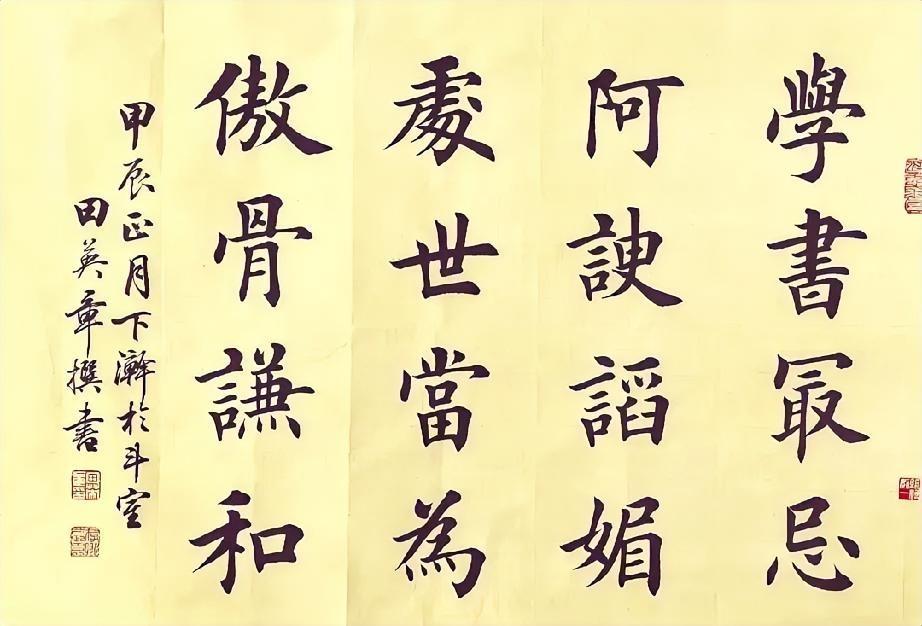 學書冣忌
阿諛謟媚
處世當為
傲骨謙和
甲辰正月下澣於斗室
田英章撰書